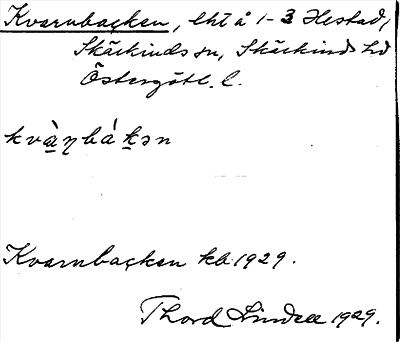 Kvarnbacken, lht å 1-3 Hestad,
Skärkinds sn, Skärkinds hd
Östergötl. l.
kvàṇbákən
Kvarnbacken kb 1929.
Thord Lindell 1929.